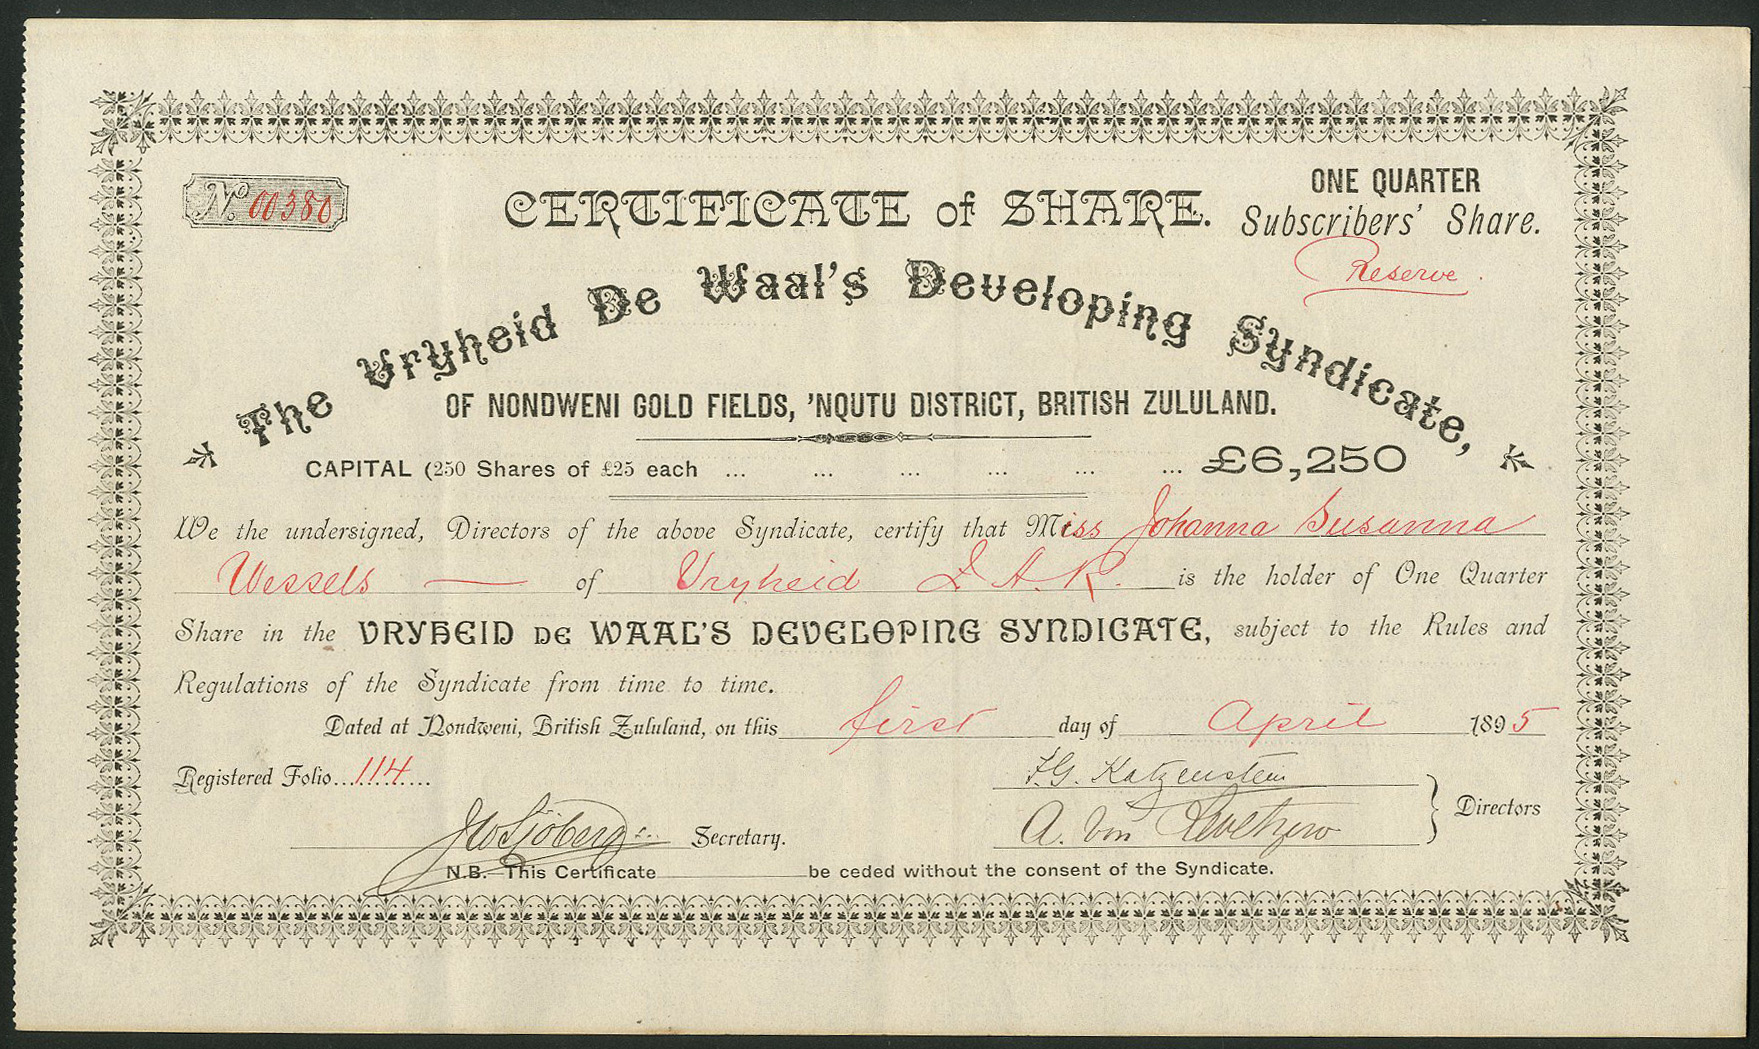 No. 00380
CERTIFICATE of SHARE.
ONE QUARTER
Subscribers' Share.
Reserve.
The Vryheid De Waal's Developing Syndicate,
OF NONDWENI GOLD FIELDS, 'NQUTU DISTRICT, BRITISH ZULULAND.
CAPITAL (250 Shares of £25 each ... ... ... ... ... ... £6,250
We the undersigned, Directors of the above Syndicate, certify that Miss Johanna Susanna
Wessels — of Vryheid Z.A.R. is the holder of One Quarter
Share in the VRYHEID DE WAAL'S DEVELOPING SYNDICATE, subject to the Rules and
Regulations of the Syndicate from time to time.
Dated at Nondweni, British Zululand, on this first day of April 1895
Registered Folio...114...
F.G. Katzenstein
A. von
Directors
JW Sjöberg Secretary.
N.B. This Certificate be ceded without the consent of the Syndicate.